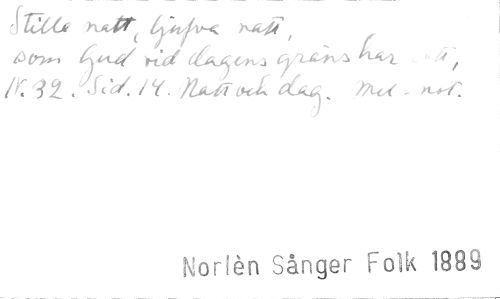 Stilla natt, ljufva natt,
som Gud vid dagens gräns har
N. 32. Sid. 14. Natt och dag. Mel. not.
Norlèn Sånger Folk 1889